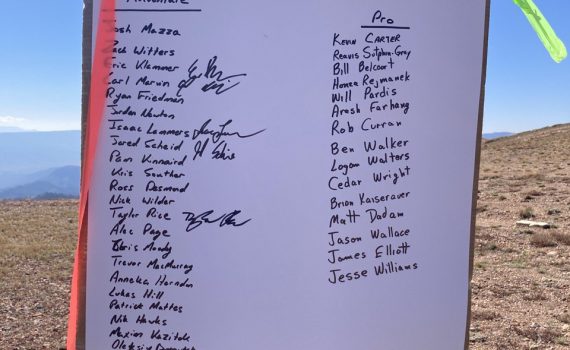 Adventure
Josh Mazza
Zach Witters
Eric Klammer
Carl Marvin
Ryan Friedman
Jordan Newton
Isaac Lammers
Jared Scheid
Pam Kinnaird
Kris Souther
Ross Desmond
Nick Wilder
Taylor Rice
Alec Page
Chris Moody
Trevor MacMurray
Anneka Herndon
Lukas Hill
Patrick Mattes
Nik Hawks
Maxim Kazitok
Oleksiy
Pro
Kevin Carter
Reavis Sutphin-Gray
Bill Belcourt
Honza Rejmanek
Will Pardis
Arash Farhang
Rob Curran
Ben Walker
Logan Walters
Cedar Wright
Brian Kaiserauer
Matt Dadam
Jason Wallace
James Elliott
Jesse Williams